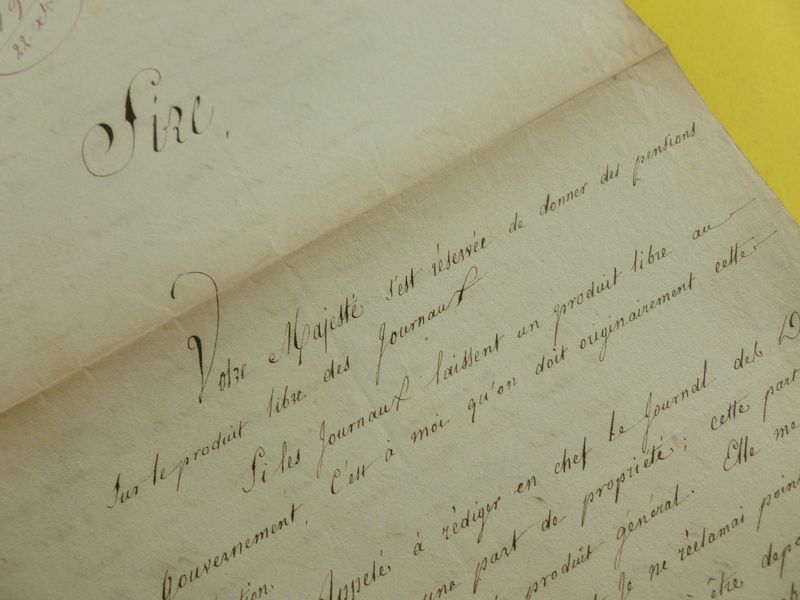 22 xbre
Sire,
Votre Majesté s'est réservée de donner des pensions
sur le produit libre des Journaux
Si les Journaux laissent un produit libre au
Gouvernement, C'est à moi qu'on doit originairement cette
Appelé à rédiger en chef Le Journal des D
une part de propriété; cette part
produit général. Elle me
Je ne réclamai point
être